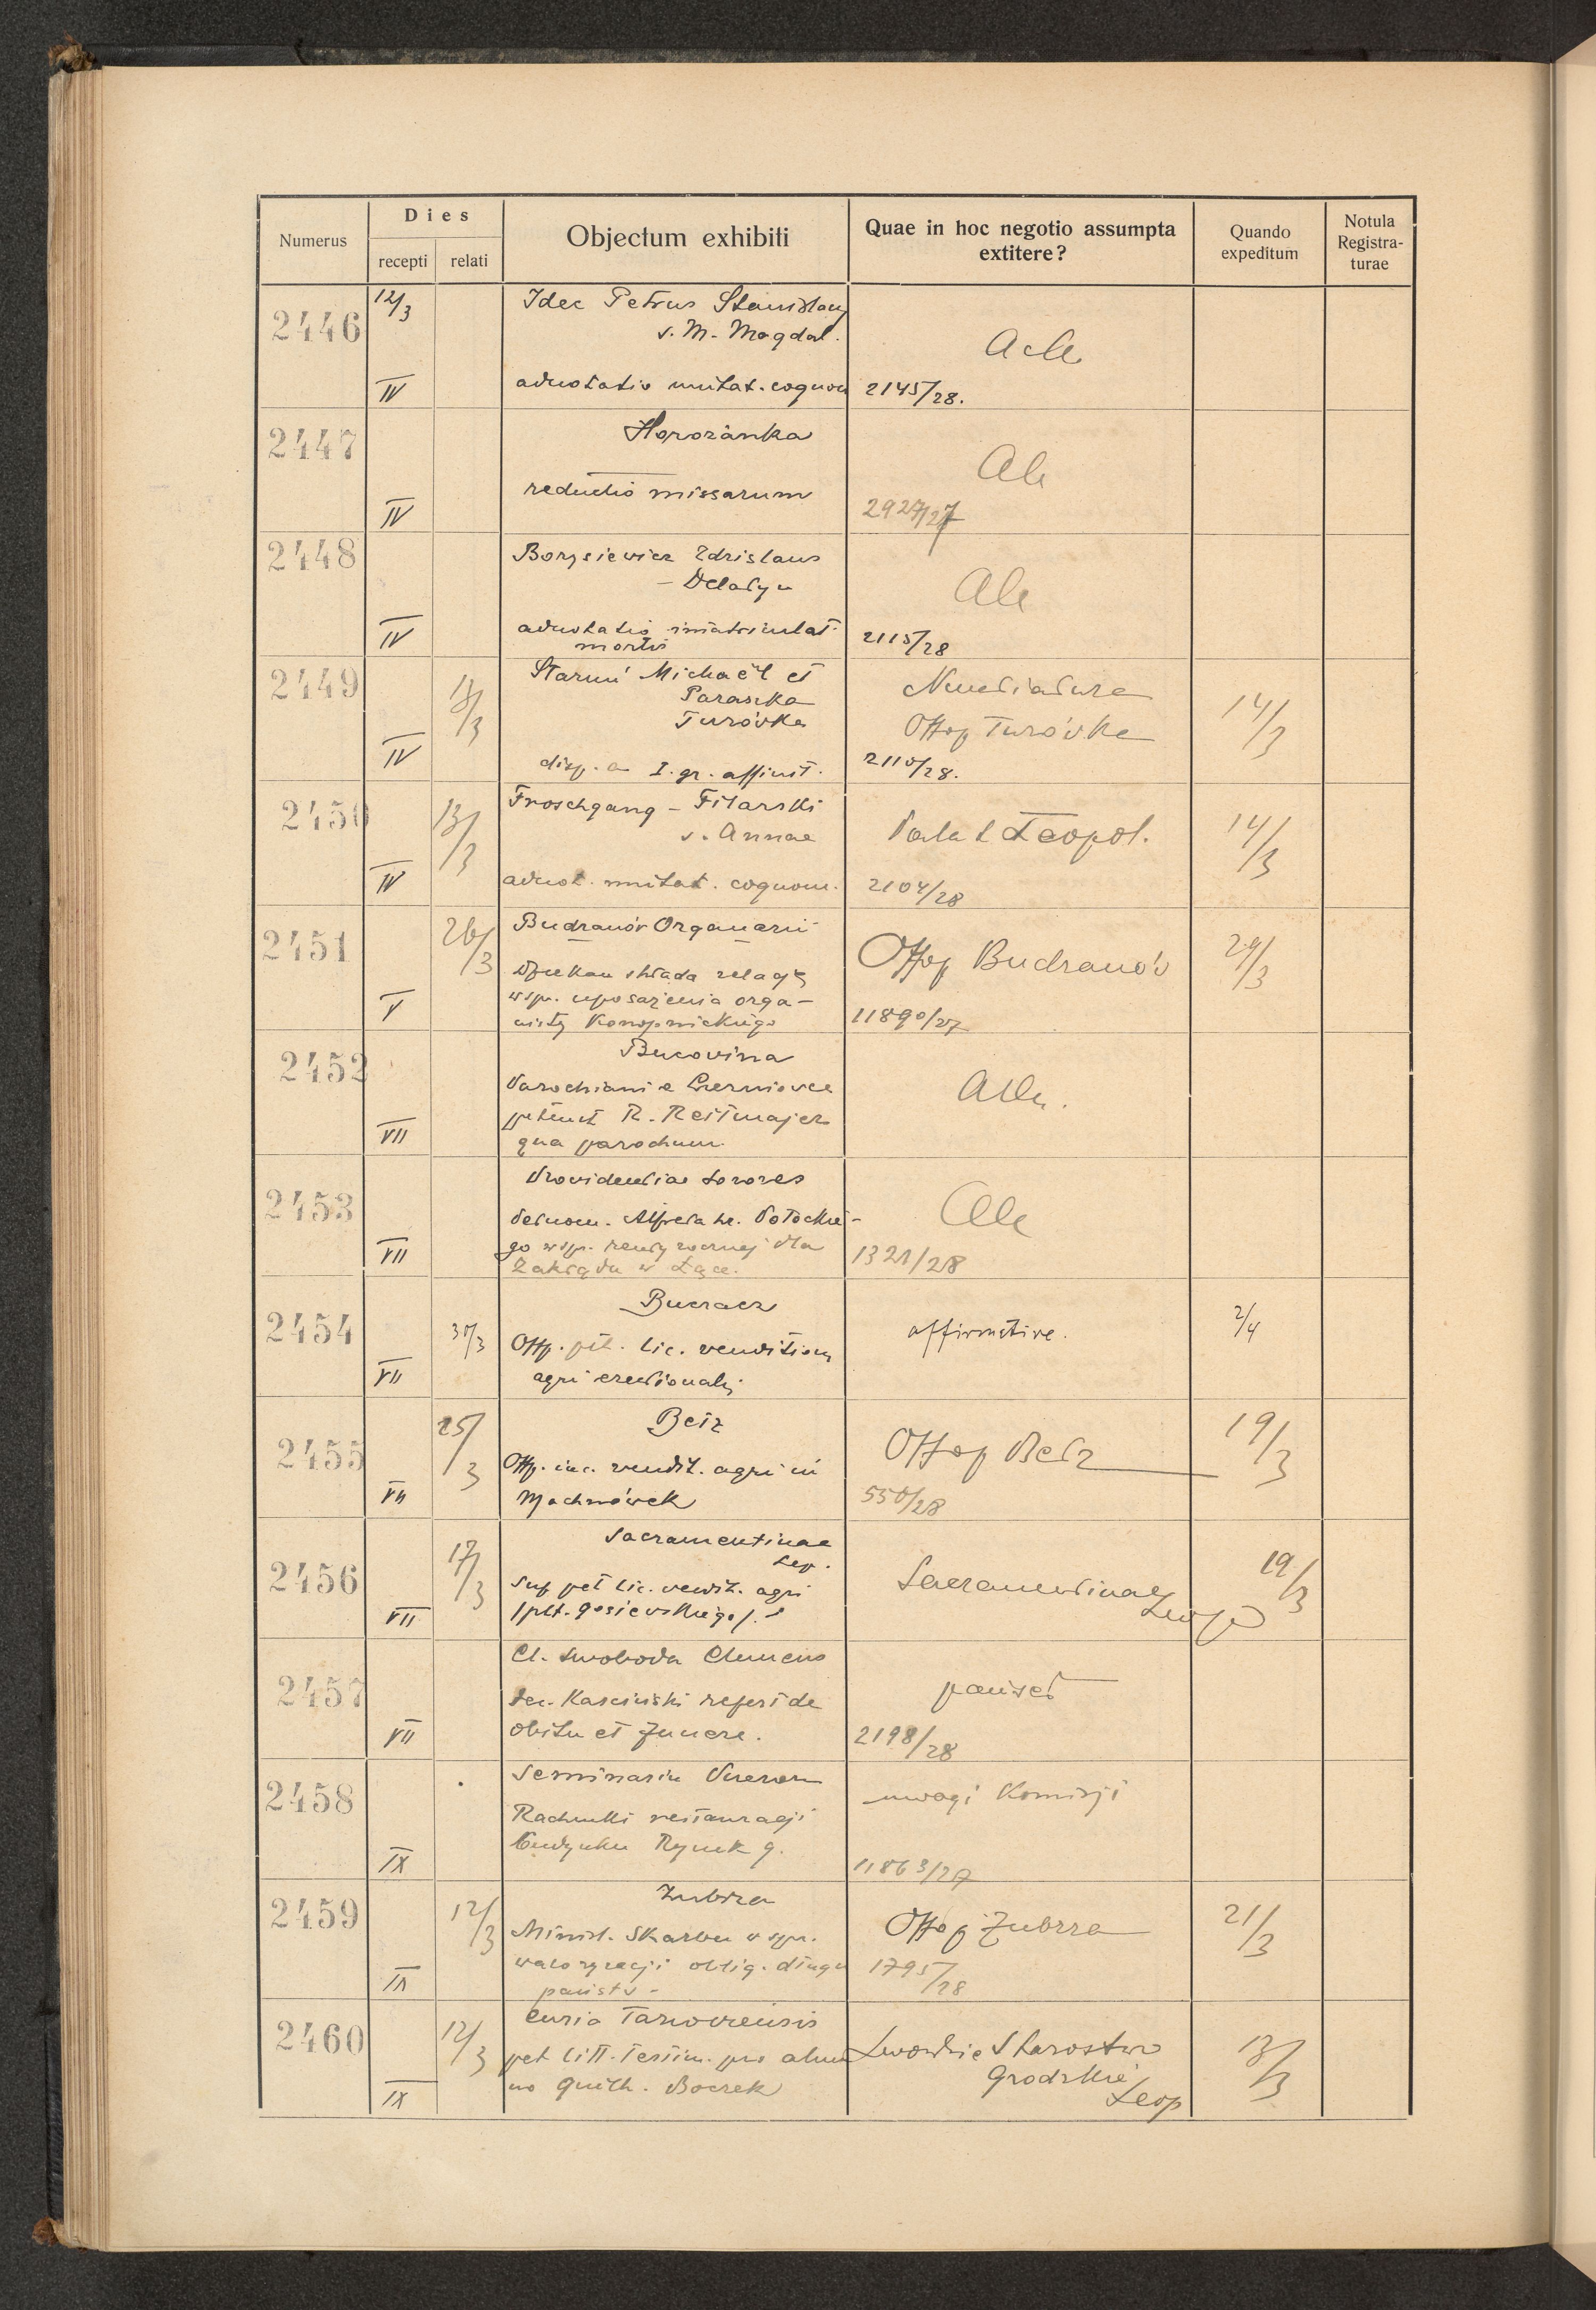 Numerus
Dies
recepti
relati
Objectum exhibiti
Quae in hoc negotio assumpta extitere?
Quando expeditum
Notula Registra-turae
2446
12/3
IV
Idec Petrus Stanislaus
s. M. Magdal.
adnotatio mutat. cognom
2145/28.
2447
IV
Horożanka
reductio missarum
2927/27
2448
IV
Borysiewicz Zdzislaus
- Delatyn
adnotatio immatriculat.
mortis
2115/28
2449
IV
Michaël et
Paraska
Turówka
disp. a I. gr. affinit.
Nuntiatura
Offop Turówka
2110/28.
14/3
2450
13/3
IV
Froschgang - Filarski
s. Annae
adnot. mutat. cognom.
Leopol.
2104/28
14/3
2451
26/3
V
Budzanów Organarii
Dziekan składa relację
wspr. uposażenia orga-
nisty Konopnickiego
Offop Budzanów
11890/27
29/3
2452
VII
Bucovina
Parochiani e Czerniovce
petunt R. Reitmajer
qua parochum.
2453
VII
Providentiae Sorores
Pełnom. Alfreda hr. Potockie-
go wspr. renty rocznej dla
Zakładu w Łące.
1321/28
2454
VII
Buczacz
Offp. pet. lic. venditions
agri erectionalis
affirmative.
2/4
2455
25/3
VII
Bełz
Offp. vendit. agri in
Machnówek
Offop Bełz
550/28
19/3
2456
17/3
VII
Sacramentinae
Leop.
Sup pet lic. vendit. agri
Sacramentinae
Leop
19/3
2457
VII
Cl. Swoboda Clemens
Dec. Kasciński refert de
obitu et funere.
2198/28
2458
IX
Seminarium Puerorum
Rachunki restauracji
budynku Rynek 9.
uwagi Komisji
11863/27
2459
12/3
IX
Zubrza
Minist. Skarbu w spr.
waloryzacji oblig. długu
państw -
Offop Zubrza
1795/28
21/3
2460
12/3
IX
Curia Tarnoviensis
pet litt. testim. pro alum
no Guilh. Boczek
Lwowskie Starostwo
Grodzkie
Leop
13/3